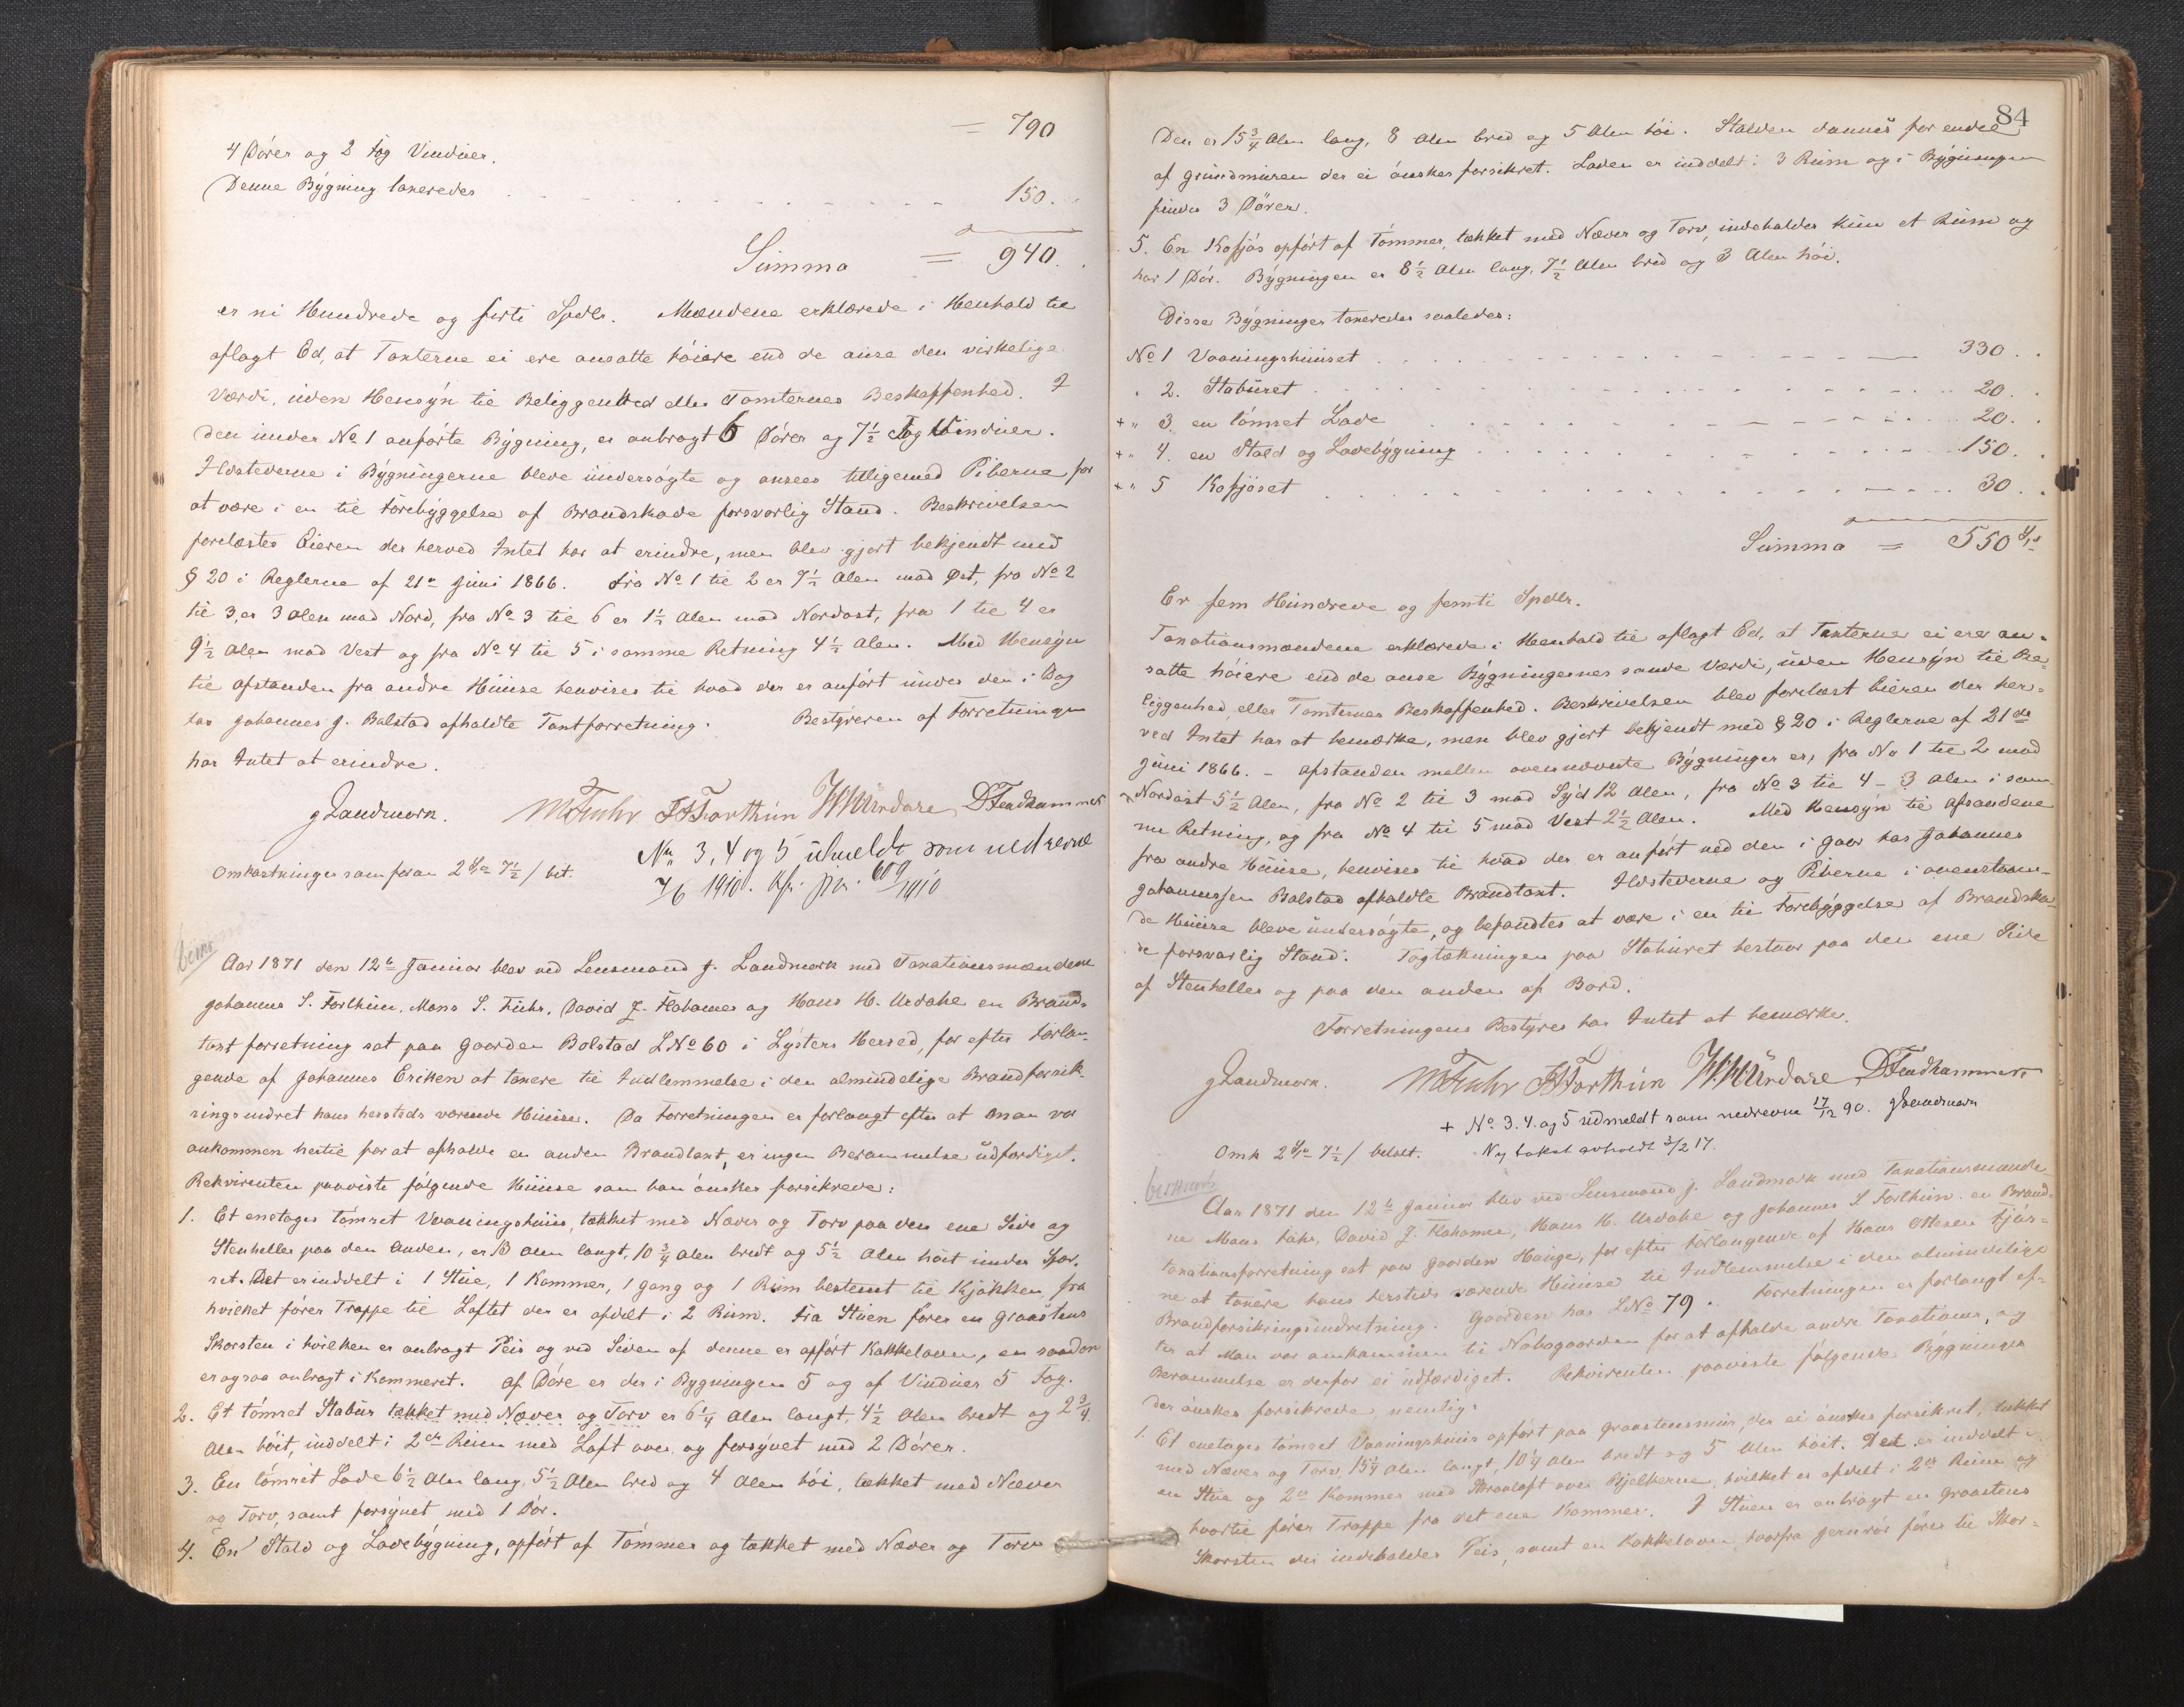 = 790
4 Döre og 2 Fag Vinduer.
Denne Bÿgning taxeredes 150.
Summa = 940.
er ni Hundrede og firti Spdlr. Mændene erklærede i Henhold til
aflagt Ed, at Taxterne ei ere ansatte höiere end de anse den virkelige
Værdi, uden Hensÿn til Beliggenhed eller Tomternes Beskaffenhed. I
den under No 1 anförte Bÿgning, er anbragt 6 Döre og 7½ Fag Vinduer.
Ildstederne i Bÿgningerne bleve undersögte og ansees tilligemed Piberne for
at være i en til Forebÿggelse af Brandskade forsvarlig Stand. Beskrivelsen
forelæstes Eieren der herved Intet har at erindre, men blev gjort bekjendt med
§ 20 i Reglerne af 21de Juni 1866. Fra No 1 til 2 er 9½ Alen mod Øst, fra No 2
til 3, er 3 Alen mod Nord, fra No 3 til 6 er 1½ Alen mod Nordost, fra 1 til 4 er
9½ Alen mod Vest og fra No 4 til 5 i samme Retning 4½ Alen. Med Hensÿn
til Afstanden fra andre Huuse henvises til hvad der er anfört under den i Dag
hos Johannes J. Bolstad afholdte Taxtforretning. Bestÿreren af Forretningen
har Intet at erindre.
J Landmark. M Fuhr J S Forthun H H Urdahe D Fladhammer
Omkostninger som foran 2 Spd 7½ / bet.
No 3, 4 og 5 utmeldt som nedrevne
7/6 1910. Kfr. jnr. 609/1910
Aar 1871 den 12te Januar blev ved Lensmand J. Landmark med Taxationsmændene
Johannes S. Forthun, Mons S. Fuhr, David J. Flahamer og Hans H. Urdahe en Brand-
taxtforretning sat paa Gaarden Bolstad LNo 60 i Lÿsters Herred, for efter Forlan-
gende af Johannes Eriksen at taxere til Indlemmelse i den almindelige Brandforsik-
ringsindret hans hersteds værende Huuse. Da Forretningen er forlangt efter at man var
ankommen hertil for at afholde en anden Brandtaxt, er ingen Berammelse udfærdiget.
Rekvirenten paaviste fölgende Huuse som han önsker forsikrede:
1. Et enetages tömret Vaaningshuus, tækket med Næver og Torv paa den ene Side og
Stenheller paa den Anden, er 13 Alen langt, 10¾ Alen bredt og 5½ Alen höit under Spær-
ret. Det er inddelt i 1 Stue, 1 Kammer, 1 Gang og 1 Rum bestemt til Kjökken, fra
hvilket förer Trappe til Loftet der er afdelt i 2 Rum. Fra Stuen förer en Graastens
Skorsten i hvilken er anbragt Peis og ved Siden af denne er opfört Kakkelovn, en saadan
er ogsaa anbragt i Kammeret. Af Döre er der i Bygningen 5 og af Vinduer 5 Fag.
2. Et tömret Stabur tækket med Næver og Torv er 6¼ Alen langt, 4½ Alen bredt og 2¾
Alen höit, inddelt i 2de Rum med Loft over og forsÿnet med 2 Döre.
3. En tömret Lade 6½ Alen lang, 5½ Alen bred og 4 Alen höi, tækket med Næver
og Torv, samt forsÿnet med 1 Dör.
4. En Stald og Ladebÿgning, opfört af Tömmer og tækket med Næver og Torv
84
Den er 15¾ Alen lang, 8 Alen bred og 5 Alen höi. Stalden dannes for endeel
af Grundmuren der ei önskes forsikret. Laden er inddelt i 3 Rum og i Bÿgningen
findes 3 Döre.
5. En Kofjös opfört af Tömmer, tækket med Næver og Torv, indeholder kun et Rum og
har 1 Dör. Bÿgningen er 8½ Alen lang, 7½ Alen bred og 3 Alen höi.
Disse Bÿgninger taxeredes saaledes:
No 1 Vaaningshuuset 330.
" 2. Staburet 20.
+ " 3. en tömret Lade 20.
+ " 4. en Stald og Ladebÿgning 150.
+ " 5 Kofjöset 30.
Summa = 550 Spd
Er fem Hundrede og femti Spdlr.
Taxationsmændene erklærede i Henhold til aflagt Ed, at Taxterne ei ere an-
satte höiere end de anse Bÿgningernes sande Værdi, uden Hensÿn til Be-
liggenhed eller Tomternes Beskaffenhed. Beskrivelsen blev forelæst Eieren der her-
ved Intet har at bemærke, men blev gjort bekjendt med § 20 i Reglerne af 21de
Juni 1866. - Afstanden mellem ovennævnte Bÿgninger er, fra No 1 til 2 mod
Nordost 5½ Alen, fra No 2 til 3 mod Sÿd 12 Alen, fra No 3 til 4 - 3 Alen i sam-
me Retning, og fra No 4 til 5 mod Vest 2½ Alen. Med Hensÿn til Afstandene
fra andre Huuse, henvises til hvad der er anfört ved den i Gaar hos Johannes
Johannessen Bolstad afholdte Brandtaxt. Ildstederne og Piberne i ovenstaaen-
de Huuse bleve undersögte, og befandtes at være i en til Forebÿggelse af Brandska-
de forsvarlig Stand. Tagtækningen paa Staburet bestaar paa den ene Side
af Stenheller og paa den anden af Bord.
Forretningens Bestÿrer har Intet at bemærke.
J Landmark. M Fuhr J S Forthun H. H Urdahe D Fladhammer
+ No 3. 4. og 5 udmeldt som nedrevne 17/12 90. J Landmark
Omk 2 Spd 7½ / betalt. Ny takst avholdt 3/2 17.
Aar 1871 den 12te Januar blev ved Lensmand J. Landmark med Taxationsmænde-
ne Mons Fuhr, David J. Flahamer, Hans H. Urdahe og Johannes S Forthun en Brand-
taxationsforretning sat paa Gaarden Hauge, for efter Forlangende af Hans Ottesen Fjös-
ne at taxere hans hersteds værende Huuse til Indlemmelse i den almindelige
Brandforsikringsindretning. Gaarden har LNo 79. Forretningen er forlangt ef-
ter at man var ankommen til Nabogaarden for at afholde andre Taxationer, og
Berammelse er derfor ei udfærdiget. Rekvirenten paaviste fölgende Bÿgninger
der önskes forsikrede nemlig:
1. Et enetages tömret Vaaningshuus opfört paa Graastensmur, der ei önskes forsikret, tækket
med Næver og Torv, 15¼ Alen langt, 10¼ Alen bredt og 5 Alen höit. Det er inddelt i
en Stue og 2de Kammer med Skraaloft over Bjelkerne, hvilket er afdelt i 2de Rum og
hvortil förer Trappe fra det ene Kammer. I Stuen er anbragt en Graastens
Skorsten der indeholder Peis, samt en Kakkelovn, hvorfra Jernrör förer til Skor-